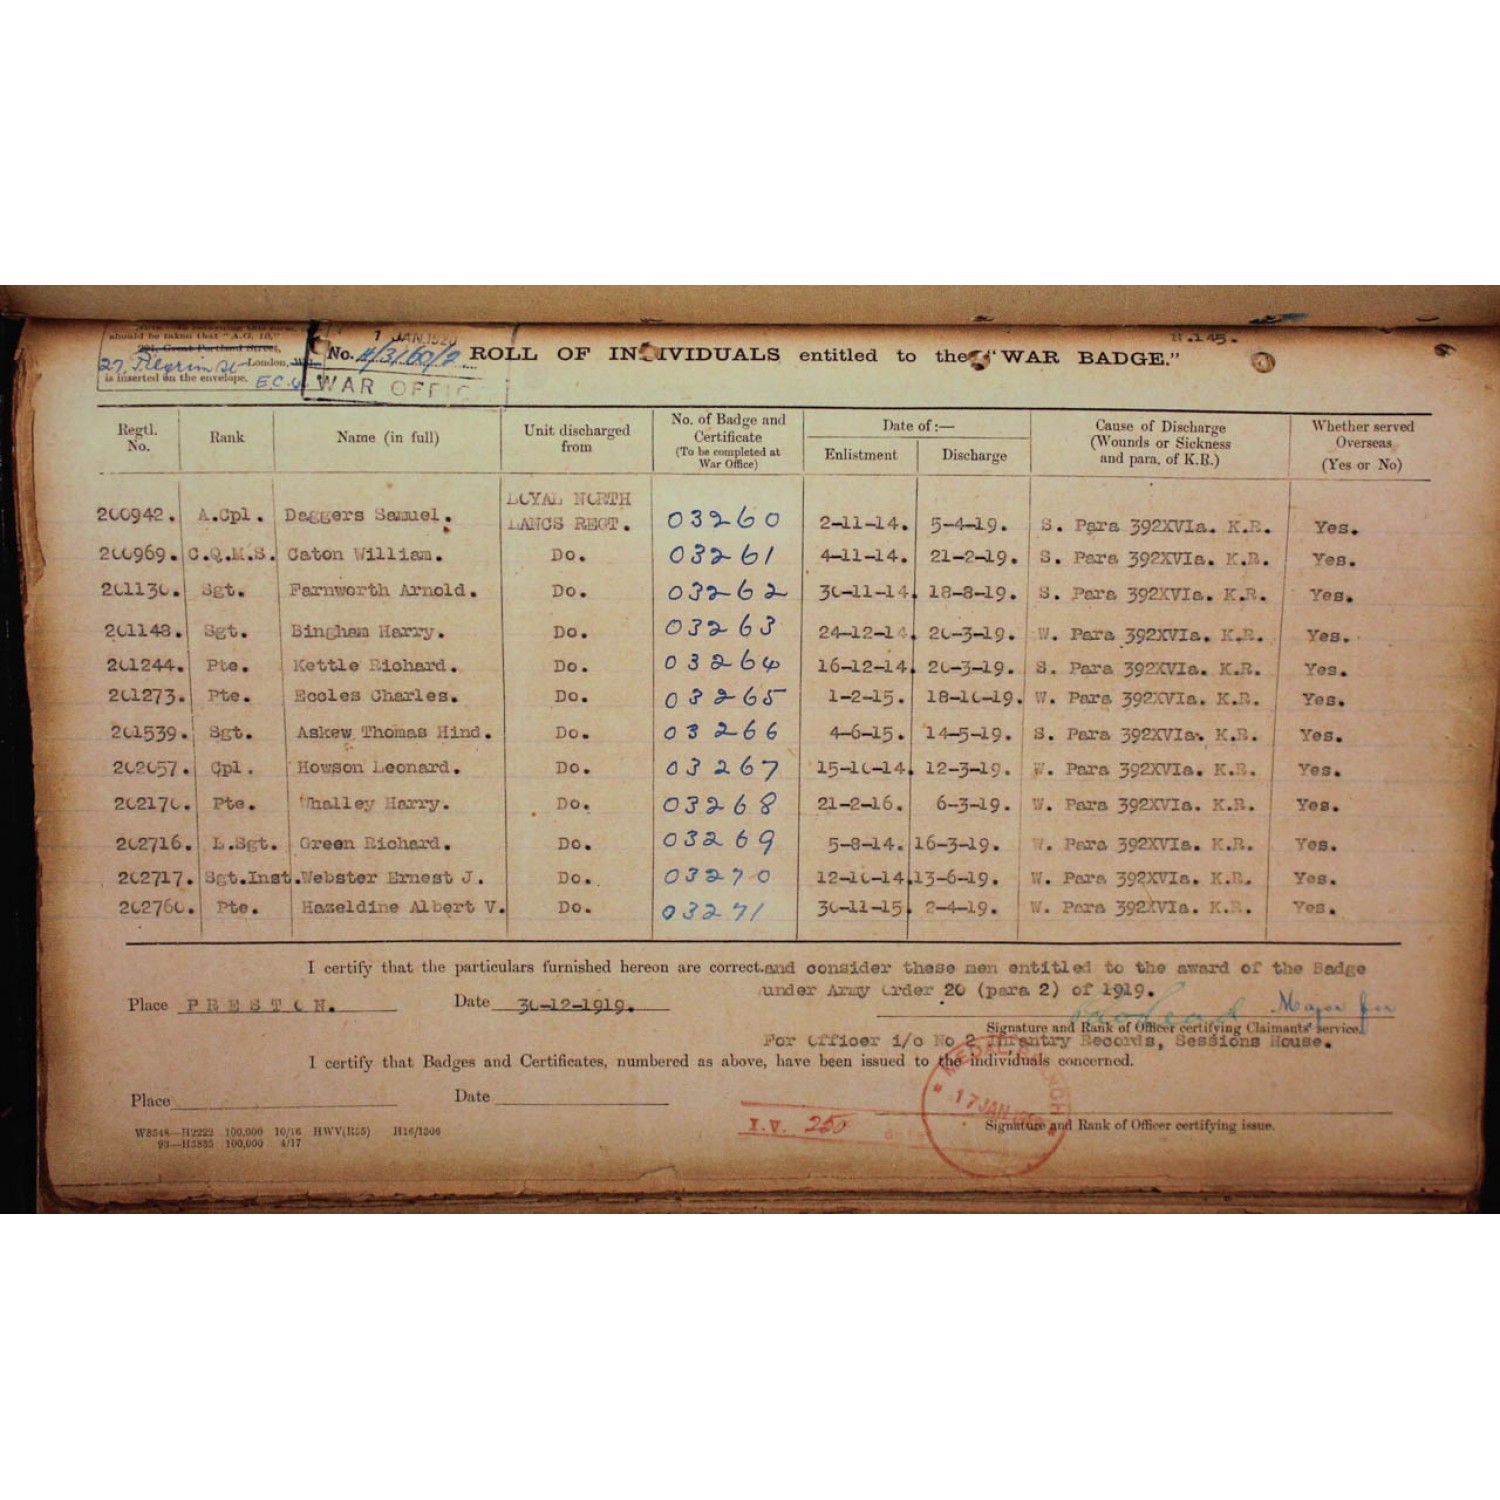 should be taken that "A.G. 10,"
London,
27, Pilgrim St
is inserted on the envelope. E.C.4.
1 JAN. 1920
No. 4/3160/2
WAR OFFIC
H.145.
ROLL OF INDIVIDUALS entitled to the "WAR BADGE."
Regtl. No. Rank Name (in full) Unit discharged from No. of Badge and Certificate (To be completed at War Office) Date of:— Enlistment Discharge Cause of Discharge (Wounds or Sickness and para. of K.R.) Whether served Overseas (Yes or No)
200942. A.Cpl. Daggers Samuel. LOYAL NORTH LANCS REGT. 03260 2-11-14. 5-4-19. S. Para 392XVIa. K.R. Yes.
200969. C.Q.M.S. Caton William. Do. 03261 4-11-14. 21-2-19. S. Para 392XVIa. K.R. Yes.
201130. Sgt. Farnworth Arnold. Do. 03262 30-11-14. 18-8-19. S. Para 392XVIa. K.R. Yes.
201148. Sgt. Bingham Harry. Do. 03263 24-12-14. 20-3-19. W. Para 392XVIa. K.R. Yes.
201244. Pte. Kettle Richard. Do. 03264 16-12-14. 20-3-19. S. Para 392XVIa. K.R. Yes.
201273. Pte. Eccles Charles. Do. 03265 1-2-15. 18-10-19. W. Para 392XVIa. K.R. Yes.
201539. Sgt. Askew Thomas Hind. Do. 03266 4-6-15. 14-5-19. S. Para 392XVIa. K.R. Yes.
202057. Cpl. Howson Leonard. Do. 03267 15-10-14. 12-3-19. W. Para 392XVIa. K.R. Yes.
202170. Pte. Whalley Harry. Do. 03268 21-2-16. 6-3-19. W. Para 392XVIa. K.R. Yes.
202716. L.Sgt. Green Richard. Do. 03269 5-8-14. 16-3-19. W. Para 392XVIa. K.R. Yes.
202717. Sgt.Inst. Webster Ernest J. Do. 03270 12-10-14. 13-6-19. W. Para 392XVIa. K.R. Yes.
202760. Pte. Hazeldine Albert V. Do. 03271 30-11-15. 2-4-19. W. Para 392XVIa. K.R. Yes.
I certify that the particulars furnished hereon are correct.and consider these men entitled to the award of the Badge
under Army Order 20 (para 2) of 1919.
Place PRESTON. Date 30-12-1919. Major for
Signature and Rank of Officer certifying Claimants' service.
For Officer i/c No 2 Infantry Records, Sessions House.
I certify that Badges and Certificates, numbered as above, have been issued to the individuals concerned.
Place Date
Signature and Rank of Officer certifying issue.
17 JAN
I.V. 250
W8548—H2222 100,000 10/16 HWV(R55) H16/1306
93—H3835 100,000 4/17